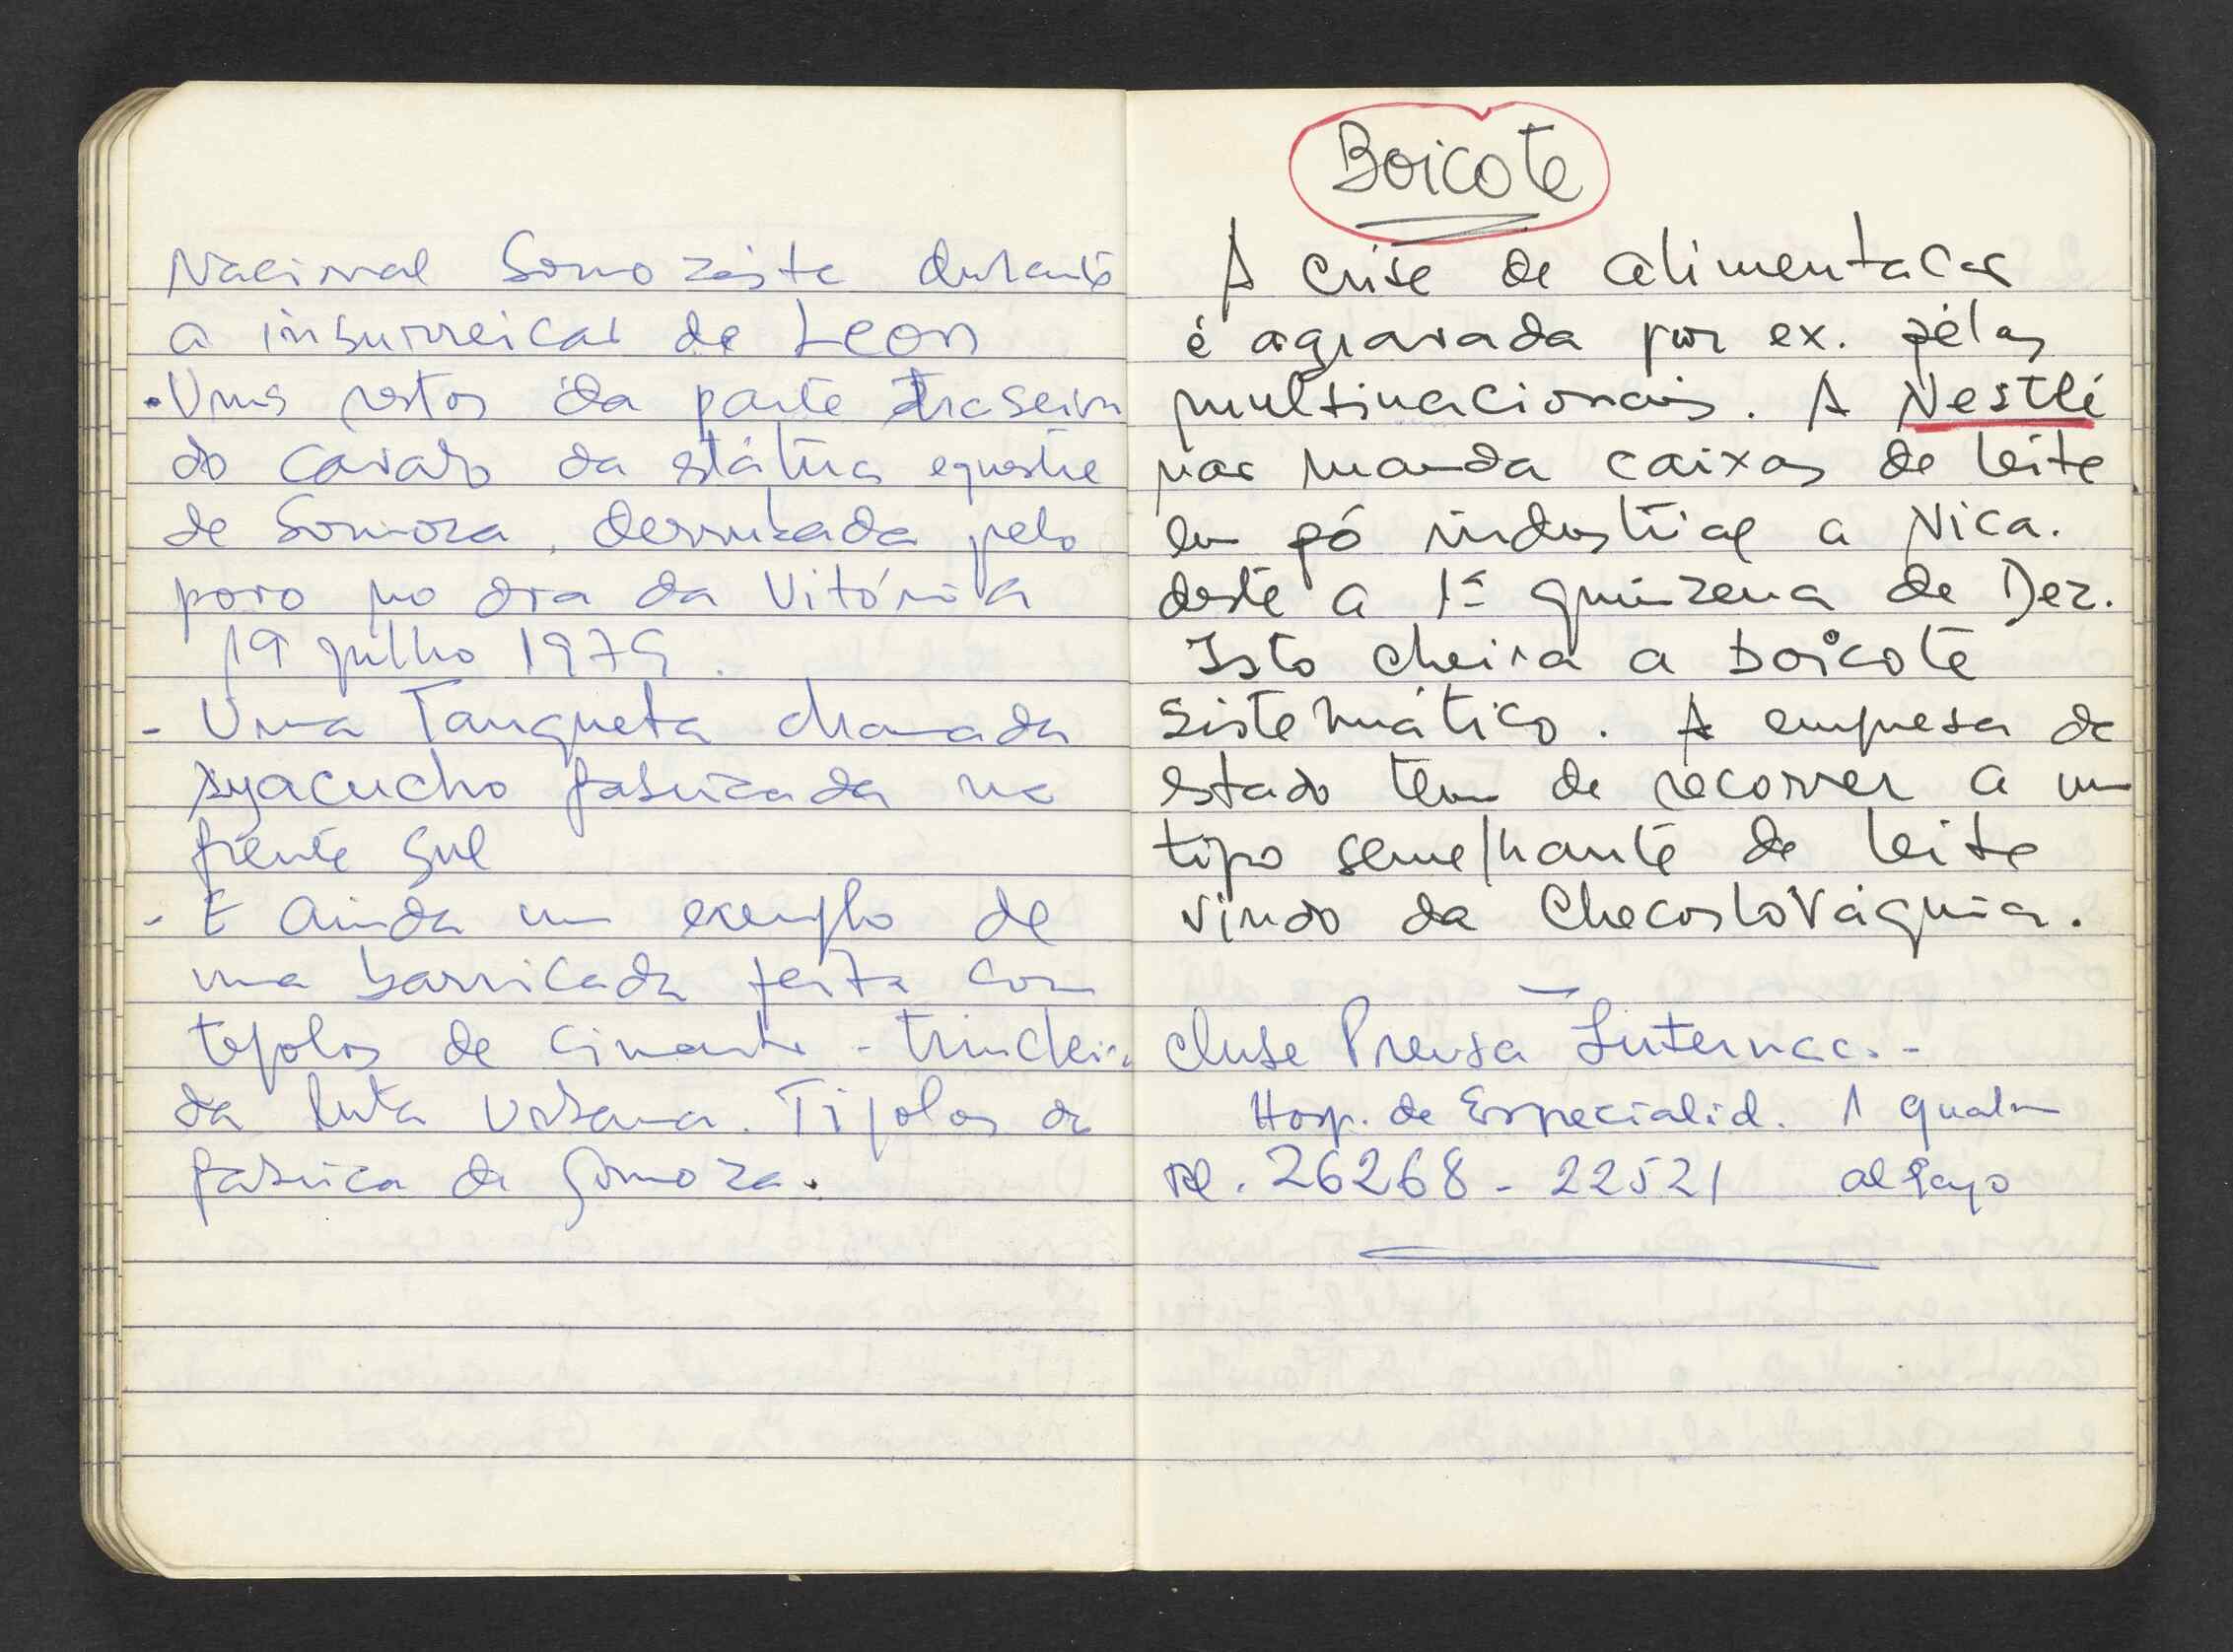 Nacional Somozista durante
a insurreicao de Leon
. Uns restos da parte traseira
do cavalo da estátua equestre
de Somoza, derrubada pelo
povo no dia da Vitória
19 julho 1979.
- Uma Tanqueta chamada
Ayacucho fabricada na
frente Sul
- E ainda um exemplo de
uma barricada feita com
tejolos de cimento - trincheira
da luta urbana. Tijolos da
fabrica de Somoza.
Boicote
A crise de alimentacao
é agravada por ex. pélas
multinacionais. A Nestlé
nao manda caixas de leite
em pó industrial a Nica.
desde a 1ª quinzena de Dez.
Isto cheira a boicote
sistemático. A empresa de
estado tem de recorrer a um
tipo semelhante de leite
vindo da Checoslováquia.
Prensa Internac.-
Hosp. de Especialid. 1 quadra
26268 - 22521 al lago